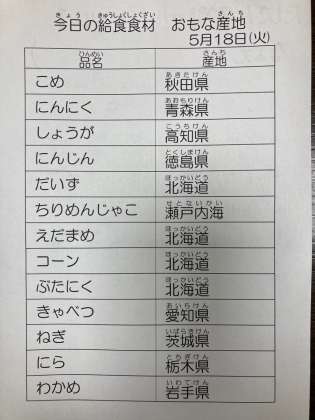 今日の給食食材　おもな産地
5月18日(火)
品名　産地
こめ　秋田県
にんにく　青森県
しょうが　高知県
にんじん　徳島県
だいず　北海道
ちりめんじゃこ　瀬戸内海
えだまめ　北海道
コーン　北海道
ぶたにく　北海道
きゃべつ　愛知県
ねぎ　茨城県
にら　栃木県
わかめ　岩手県